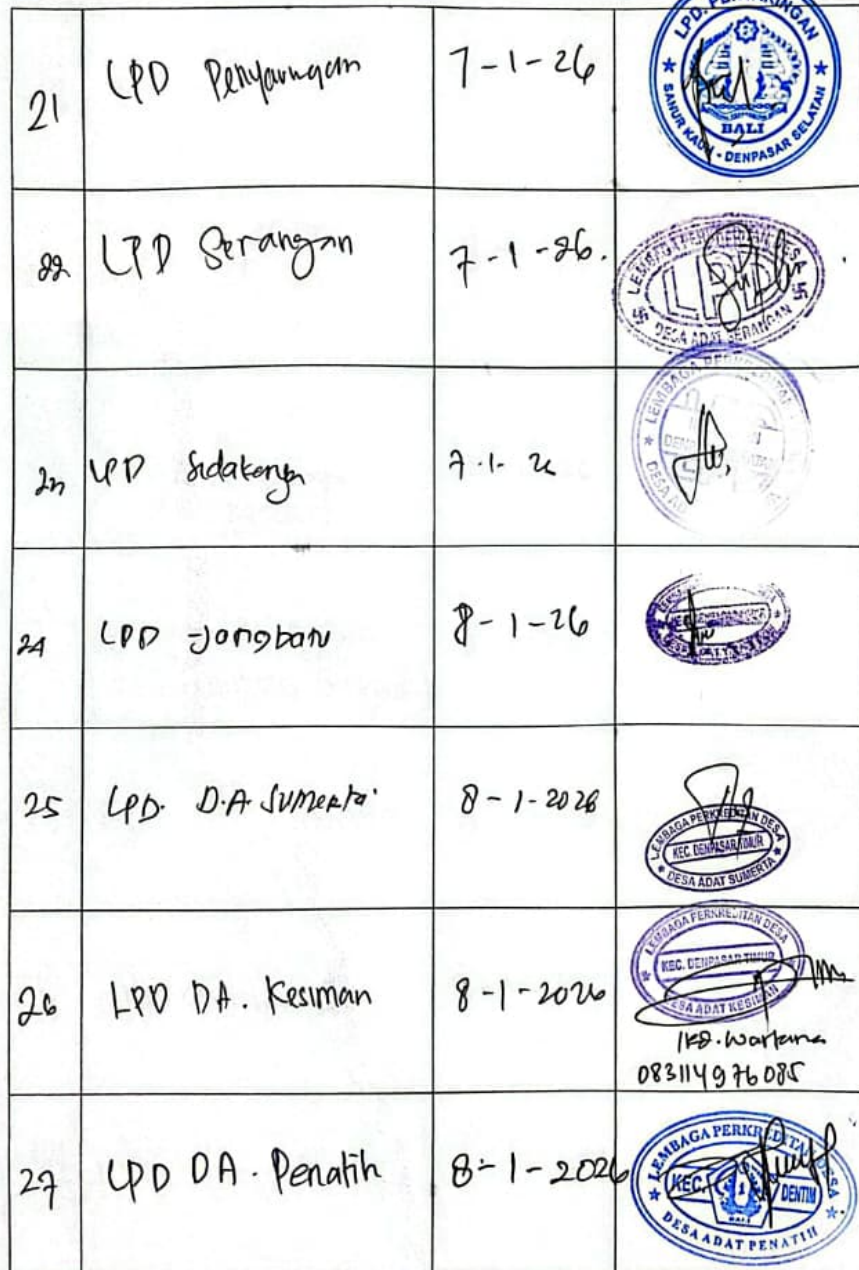 21 LPD Penyaringan 7-1-26
LPD. PENYARINGAN
BALI
SANUR KAUH - DENPASAR SELATAN
22 LPD Serangan 7-1-26.
LEMBAGA PERKREDITAN DESA
LPD
DESA ADAT SERANGAN
LPD Sidakarya 7.1.26
LEMBAGA
DESA
24 LPD 8-1-26
25 LPD. D.A. Sumerta 8-1-2026
LEMBAGA PERKREDITAN DESA
KEC. DENPASAR TIMUR
DESA ADAT SUMERTA
26 LPD DA. Kesiman 8-1-2026
LEMBAGA PERKREDITAN DESA
KEC. DENPASAR TIMUR
DESA ADAT KESIMAN
Wartana
083114976085
27 LPD DA. Penatih 8-1-2026
LEMBAGA PERKREDITAN DESA
KEC. DENTIM
BALI
DESA ADAT PENATIH